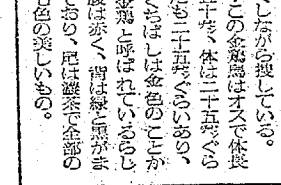 しながら捜している。
この金鶏鳥はオスで体長
五十㌢、体は二十五㌢ぐら
も二十五㌢ぐらいあり、
くちばしは金色のことか
金鶏と呼ばれているらし
腹は赤く、背は緑と黒がま
ており、尾は濃茶で全部の
色の美しいもの。